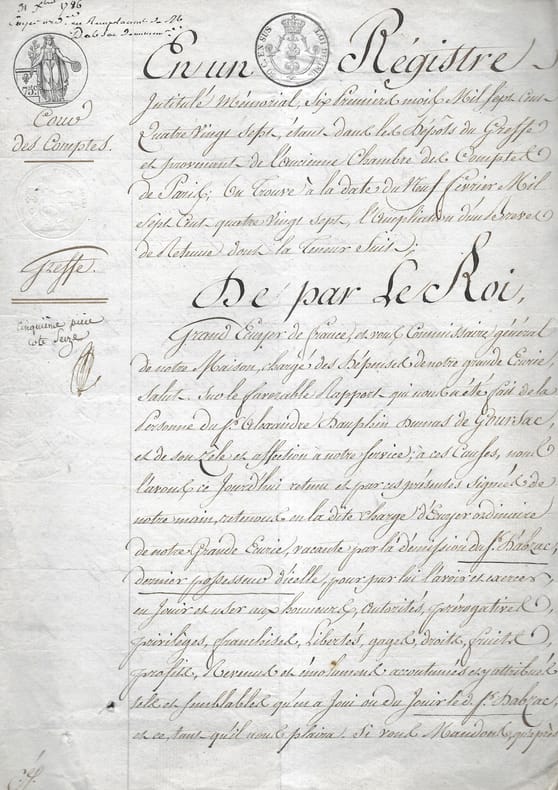 31 Xbre 1786
Ecuyer ord. en Remplacement de M.
Dabzac demissionn.
75c
LOI DU TIMBRE
EN SUS
Cour
des Comptes.
Greffe.
cinquième pièce
cote Seize
En un Régistre
Intitulé Mémorial, Six Premiers mois Mil Sept Cent
Quatre Vingt Sept, étant dans les Dépôts du Greffe
et provenant de l'ancienne Chambre des Comptes
de Paris; On Trouve à la date du Neuf février Mil
Sept Cent quatre Vingt Sept, l'Ampliation d'un Brevet
de Retenue dont la Teneur Suit;
De par Le Roi,
Grand Ecuyer de france, et vous Commissaire général
de notre Maison, chargé des Dépenses de notre grande Ecurie,
Salut. Sur le favorable Rapport qui nous a été fait de la
Personne du Sr. Alexandre Dauphin Dumas de Goursac,
et de son Zèle et affection à notre Service; à ces Causes, nous
l'avons ce Jourd'hui retenu et par ces présentes signées de
notre main, retenons en la dite charge d'Ecuyer ordinaire
de notre Grande Ecurie, vacante par la démission du Sr. Dabzac,
dernier possesseur d'icelle, pour par lui l'avoir et exercer
en Jouir et user aux honneurs, autorités, prérogatives
privilèges, franchises, Libertés, gages, droits, fruits
profits, Revenus et émolumens accoutumés et y attribués
tels et semblables qu'en a Joui ou du Jouir le d. Sr. Dabzac,
et ce, tant qu'il nous plaira. Si vous Mandons, qu'après